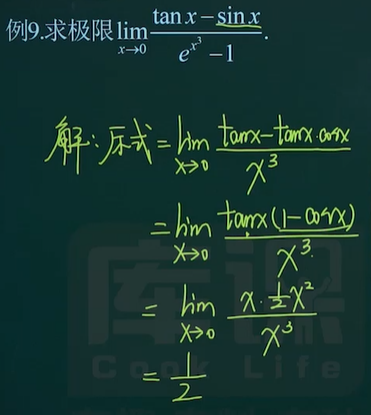 例9.求极限lim x→0 (tan x − sin x)/(e^{x^3} − 1).
解:原式=lim x→0 (tanx−tanx·cosx)/x^3
=lim x→0 (tanx(1−cosx))/x^3
= lim x→0 (x·1/2 x^2)/x^3
= 1/2
库课
Cook Life